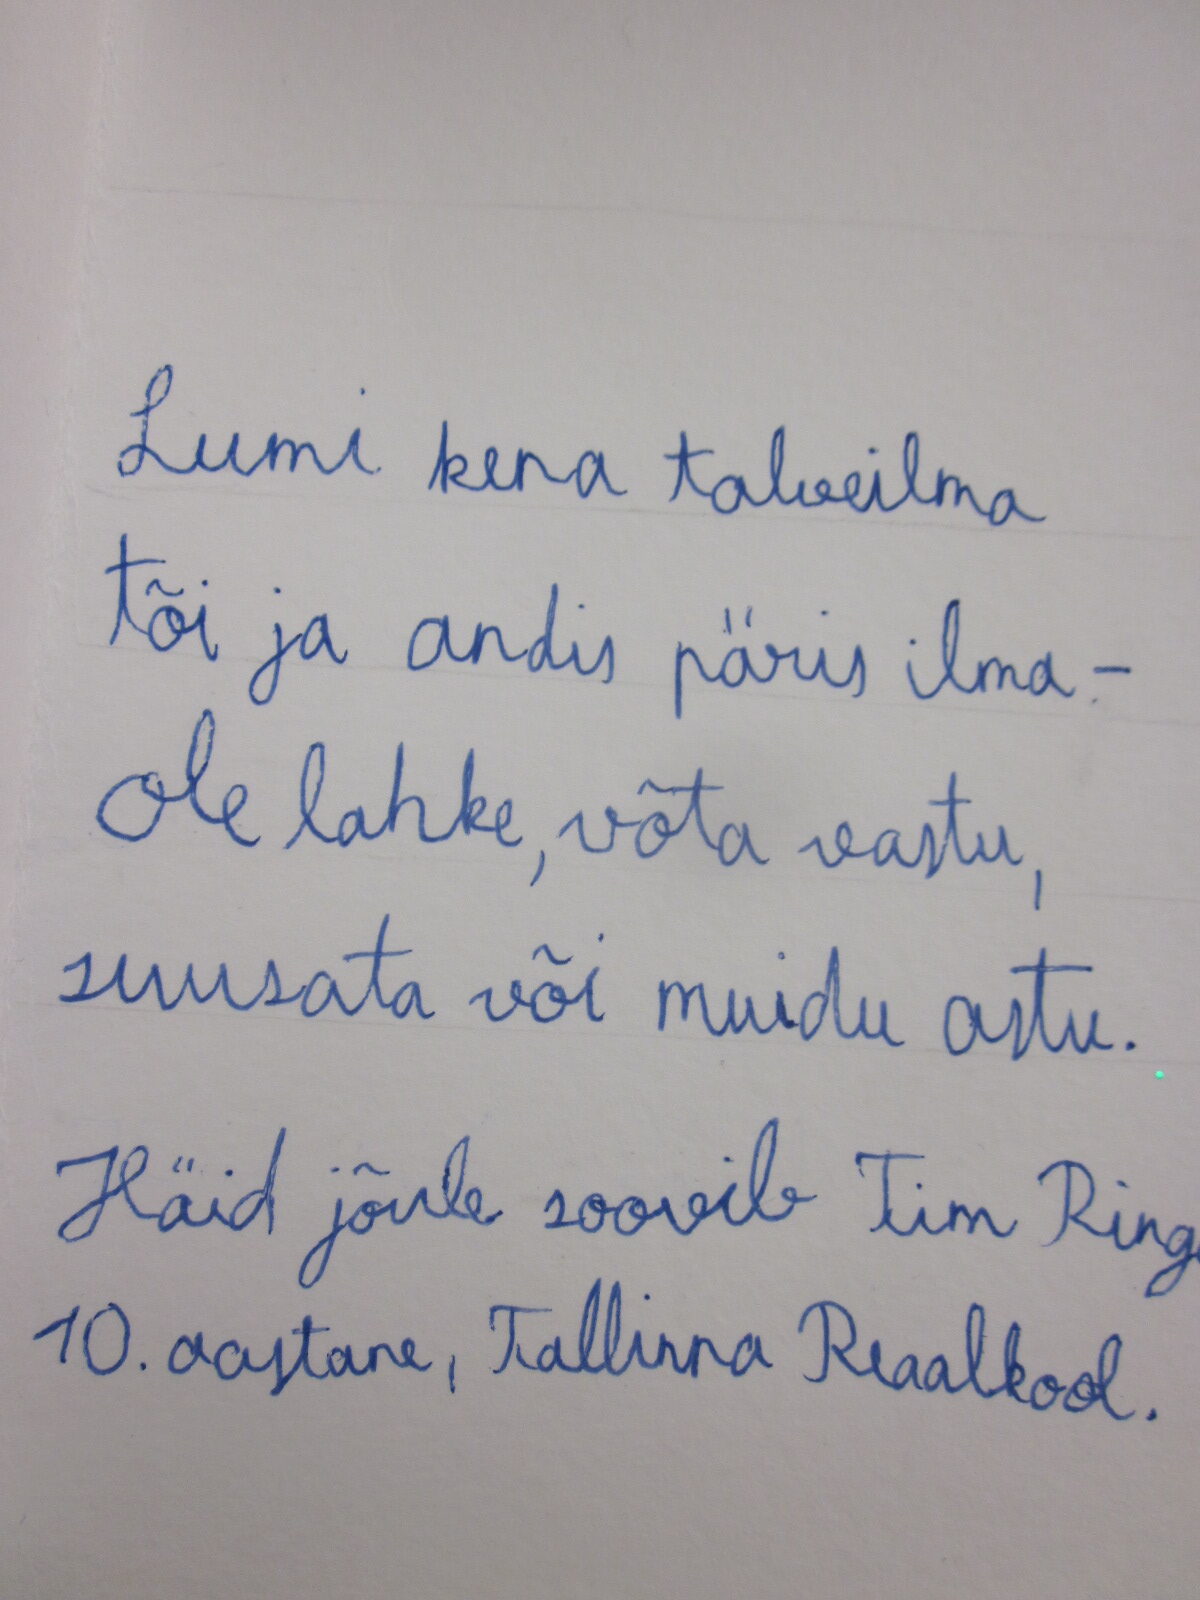 Lumi kena talveilma
tõi ja andis päris ilma -
Ole lahke, võta vastu,
suusata või muidu astu.
Häid jõule soovib Tim
10. aastane, Tallinna Reaalkool.